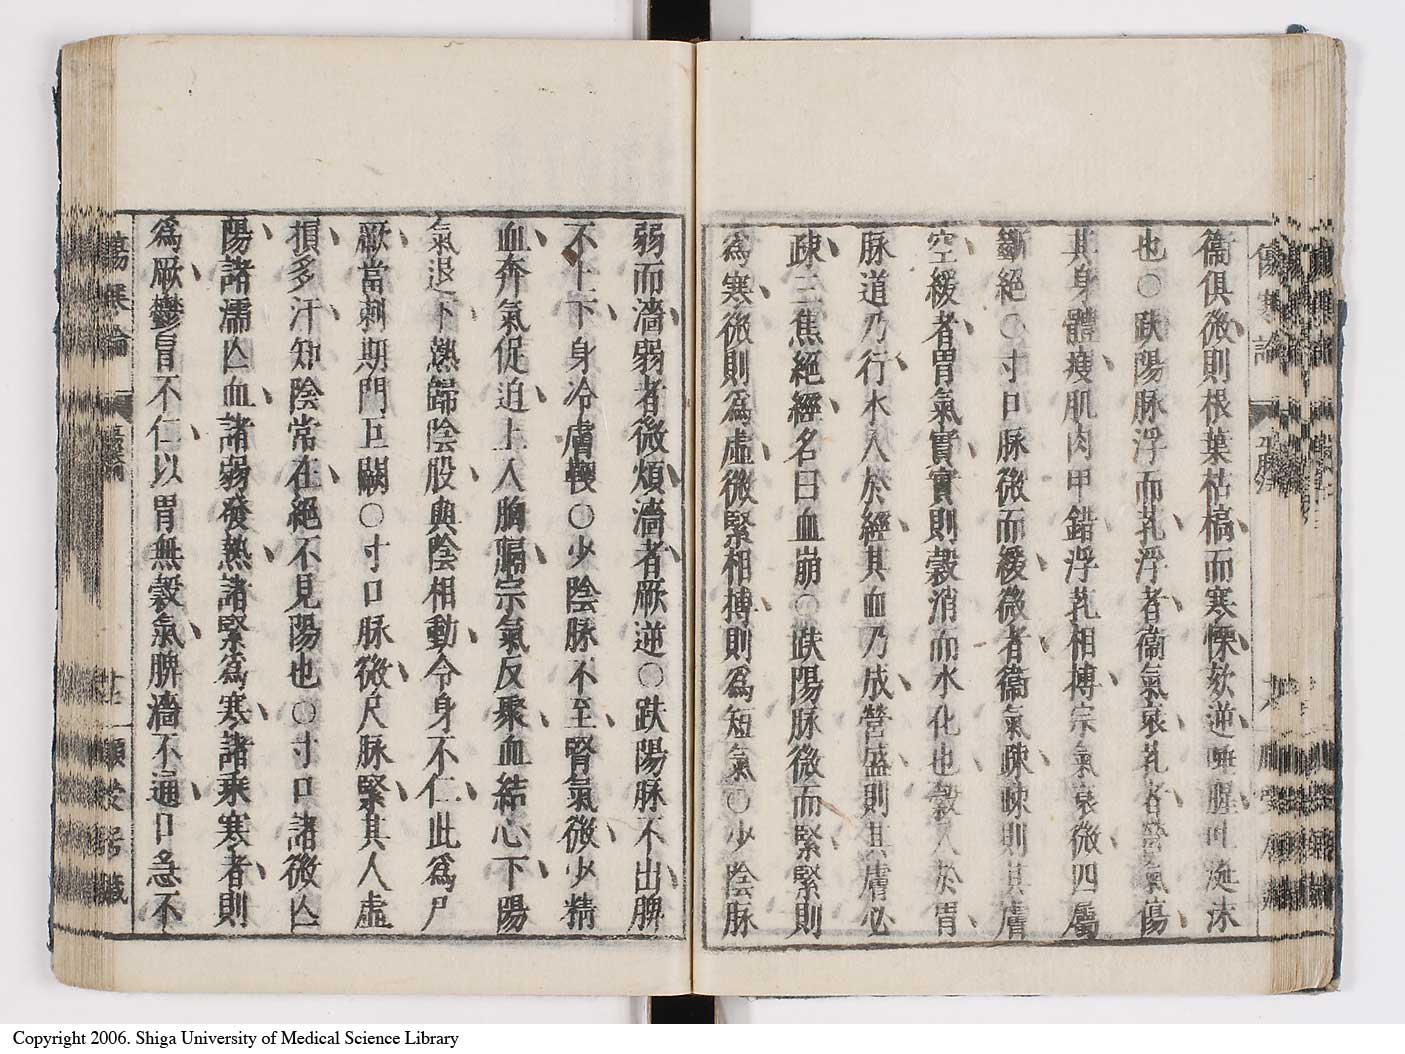 衞俱微則根葉枯槁而寒慄欬逆唾腥吐涎沫
也○趺陽脉浮而芤浮者衞氣衰芤者營氣傷
其身體瘦肌肉甲錯浮芤相搏宗氣衰微四屬
斷絕○寸口脉微而緩微者衞氣疎疎則其膚
空緩者胃氣實實則穀消而水化也穀入於胃
脉道乃行水入於經其血乃成營盛則其膚必
疎三焦絕經名曰血崩○趺陽脉微而緊緊則
爲寒微則爲虛微緊相搏則爲短氣○少陰脉
弱而濇弱者微煩濇者厥逆○趺陽脉不出脾
不上下身冷膚鞕○少陰脉不至腎氣微少精
血奔氣促迫上入胸膈宗氣反聚血結心下陽
氣退下熱歸陰股與陰相動令身不仁此爲尸
厥當刺期門巨闕○寸口脉微尺脉緊其人虛
損多汗知陰常在絕不見陽也○寸口諸微亾
陽諸濡亾血諸弱發熱諸緊爲寒諸乘寒者則
爲厥鬱冒不仁以胃無穀氣脾濇不通口急不
傷寒論
Copyright 2006. Shiga University of Medical Science Library